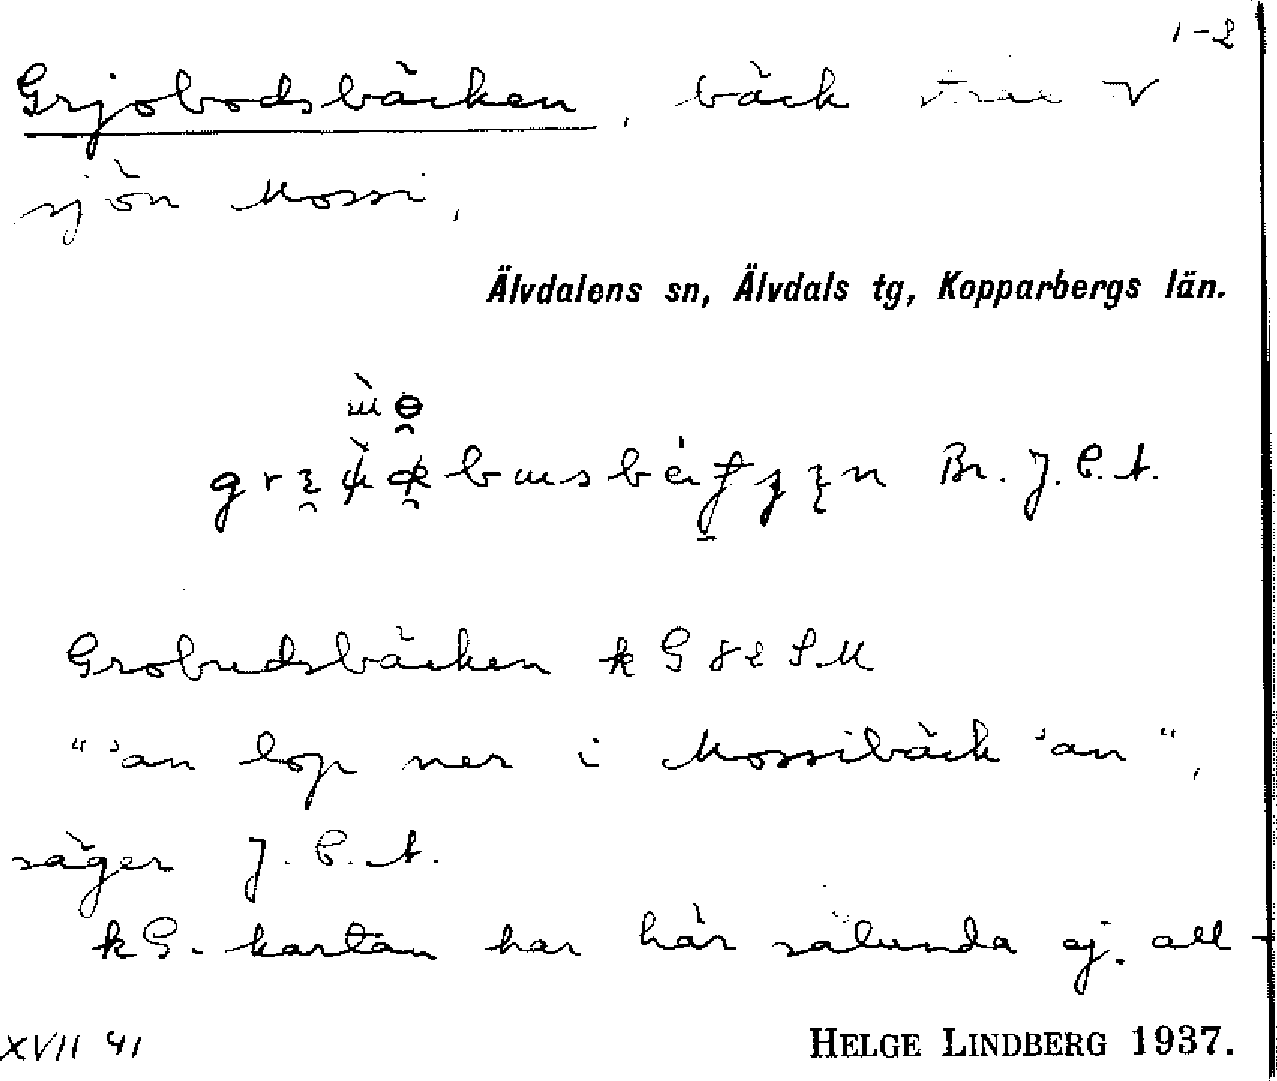 1-2
Grjobodsbäcken, bäck V
sjön Mossi,
Älvdalens sn, Älvdals tg, Kopparbergs län.
Br. J. P. A.
Grobudsbäcken kG 82 S.M
"'an lop ner i Mossibäck'an",
säger J. P. A.
kG-kartan har här sålunda ej all-
XVII 41
HELGE LINDBERG 1937.